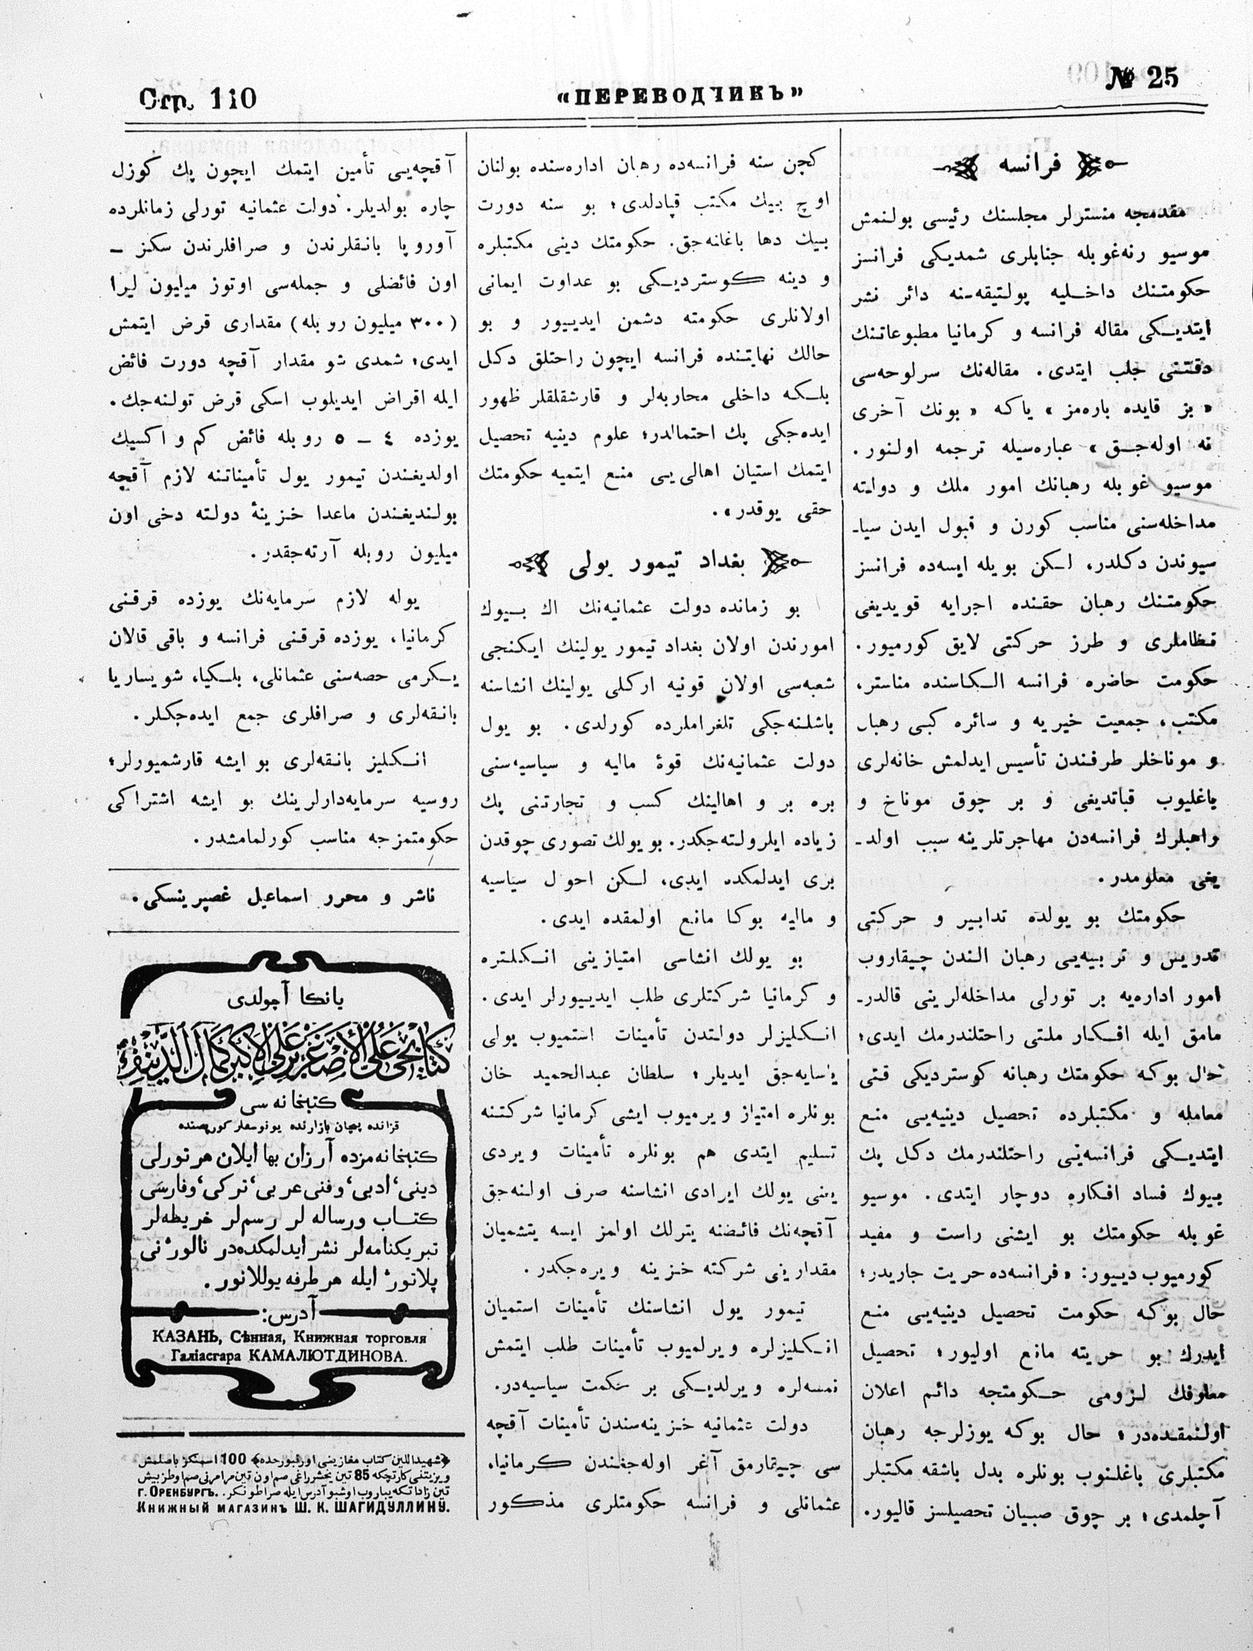 Стр. 110
«ПЕРЕВОДЧИКЪ»
№ 25
فرانسه
مقدمجه منسترلر مجلسنك رئیسی بولنمش
موسیو رنه‌غوبله جنابلری شمدیکی فرانسز
حکومتنك داخلیه پولتیقه‌سنه دائر نشر
ایتدیکی مقاله فرانسه و کرمانیا مطبوعاتنك
دقتنی جلب ایتدی. مقاله‌نك سرلوحه‌سی
«بز قایده باره‌مز» یاکه «بونك آخری
نه اوله‌جق» عباره‌سیله ترجمه اولنور.
موسیو غوبله رهبانك امور ملك و دولته
مداخله‌سنی مناسب کورن و قبول ایدن سیا-
سیوندن دکلدر، لکن بویله ایسه‌ده فرانسز
حکومتنك رهبان حقنده اجرایه قویدیغی
نظاملری و طرز حرکتی لایق کورمیور.
حکومت حاضره فرانسه الکاسنده مناستر،
مکتب، جمعیت خیریه و سائره کبی رهبان
و موناخلر طرفندن تأسیس ایدلمش خانه‌لری
یاغلیوب قپاتدیغی و بر چوق موناخ و
راهبلرك فرانسه‌دن مهاجرتلرینه سبب اولد-
یغی معلومدر.
حکومتك بو یولده تدابیر و حرکتی
تدریس و تربیه‌یی رهبان الندن چیقاروب
امور اداره‌یه بر تورلی مداخله‌لرینی قالدر-
مامق ایله افکار ملتی راحتلندرمك ایدی؛
حال بوکه حکومتك رهبانه کوستردیکی قتی
معامله و مکتبلرده تحصیل دینیه‌یی منع
ایتدیکی فرانسه‌یی راحتلندرمك دکل پك
بیوك فساد افکاره دوچار ایتدی. موسیو
غوبله حکومتك بو ایشنی راست و مفید
کورمیوب دییور: «فرانسه‌ده حریت جاریدر؛
حال بوکه حکومت تحصیل دینیه‌یی منع
ایدرك بو حریته مانع اولیور؛ تحصیل
معارفك لزومی حکومتجه دائم اعلان
اولنمقده‌در؛ حال بوکه یوزلرجه رهبان
مکتبلری باغلنوب بونلره بدل باشقه مکتبلر
آچلمدی؛ بر چوق صبیان تحصیلسز قالیور.
کچن سنه فرانسه‌ده رهبان اداره‌سنده بولنان
اوچ بیك مکتب قپادلدی؛ بو سنه دورت
بیك دها باغلنه‌جق. حکومتك دینی مکتبلره
و دینه کوستردیکی بو عداوت ایمانی
اولانلری حکومته دشمن ایدییور و بو
حالك نهایتنده فرانسه ایچون راحتلق دکل
بلکه داخلی محاربه‌لر و قارشقلقلر ظهور
ایده‌جکی پك احتمالدر؛ علوم دینیه تحصیل
ایتمك استیان اهالی‌یی منع ایتمیه حکومتك
حقی یوقدر».
بغداد تیمور یولی
بو زمانده دولت عثمانیه‌نك اك بیوك
امورندن اولان بغداد تیمور یولینك ایکنجی
شعبه‌سی اولان قونیه ارکلی یولینك انشاسنه
باشلنه‌جکی تلغراملرده کورلدی. بو یول
دولت عثمانیه‌نك قوهٔ مالیه و سیاسیه‌سنی
بره بر و اهالینك کسب و تجارتنی پك
زیاده ایلرولته‌جکدر. بو یولك تصوری چوقدن
بری ایدلمکده ایدی، لکن احوال سیاسیه
و مالیه بوکا مانع اولمقده ایدی.
بو یولك انشاسی امتیازینی انکلتره
و کرمانیا شرکتلری طلب ایدییورلر ایدی.
انکلیزلر دولتدن تأمینات استمیوب یولی
یاسایه‌جق ایدیلر؛ سلطان عبدالحمید خان
بونلره امتیاز ویرمیوب ایشی کرمانیا شرکتنه
تسلیم ایتدی هم بونلره تأمینات ویردی
یعنی یولك ایرادی انشاسنه صرف اولنه‌جق
آقچه‌نك فائضنه یترلك اولمز ایسه یتشمیان
مقدارینی شرکته خزینه ویره‌جکدر.
تیمور یول انشاسنك تأمینات استمیان
انکلیزلره ویرلمیوب تأمینات طلب ایتمش
نمسه‌لره ویرلدیکی بر حکمت سیاسیه‌در.
دولت عثمانیه خزینه‌سندن تأمینات آقچه
سی چیقارمق آغر اوله‌جغندن کرمانیا،
عثمانلی و فرانسه حکومتلری مذکور
آقچه‌یی تأمین ایتمك ایچون پك کوزل
چاره بولدیلر. دولت عثمانیه تورلی زمانلرده
آوروپا بانقلرندن و صرافلرندن سکز —
اون فائضلی و جمله‌سی اوتوز میلیون لیرا
(٣٠٠ میلیون روبله) مقداری قرض ایتمش
ایدی؛ شمدی شو مقدار آقچه دورت فائض
ایله اقراض ایدیلوب اسکی قرض تولنه‌جك.
یوزده ٤ — ٥ روبله فائض کم و اکسیك
اولدیغندن تیمور یول تأمیناتنه لازم آقچه
بولندیغندن ماعدا خزینهٔ دولته دخی اون
میلیون روبله آرته‌جقدر.
یوله لازم سرمایه‌نك یوزده قرقنی
کرمانیا، یوزده قرقنی فرانسه و باقی قالان
یکرمی حصه‌سنی عثمانلی، بلکیا، شویساریا
بانقه‌لری و صرافلری جمع ایده‌جکلر.
انکلیز بانقه‌لری بو ایشه قارشمیورلر؛
روسیه سرمایه‌دارلرینك بو ایشه اشتراکی
حکومتمزجه مناسب کورلمامشدر.
ناشر و محرر اسماعیل غصپرینسکی.
یانکا آچولدی
کتبخانه سی
قزانده پچان بازارنده
کتبخانه‌مزده آرزان بها ایلان هر تورلی
دینی، ادبی، و فنی عربی، ترکی، و فارسی
کتاب و رساله لر رسم‌لر خریطه‌لر
تبریکنامه‌لر نشر ایدلمکده‌در نالوژنی
پلاتوژ ایله هر طرفه یوللانور.
آدرس:
КАЗАНЬ, Сѣнная, Книжная торговля
Галіасгара КАМАЛЮТДИНОВА.
г. Оренбургъ.
Книжный магазинъ Ш. К. ШАГИДУЛЛИНУ.